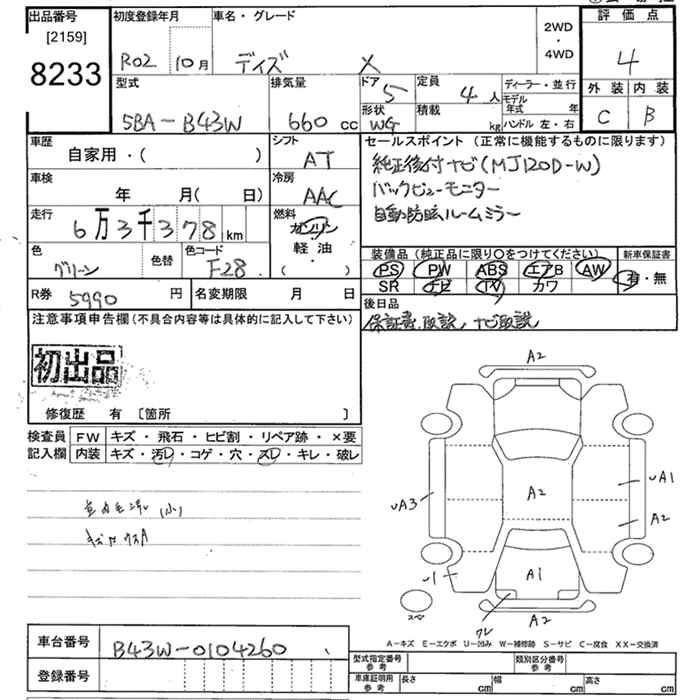 出品番号 初度登録年月 車名・グレード 評価点
[2159] 2WD・4WD
8233 R02 10月 デイズ X 4
型式 排気量 ドア 5 定員 4人 ディーラー・並行 外装 内装
5BA-B43W 660cc 形状 WG 積載 kg モデル年式 年 C B
ハンドル 左・右
車歴 自家用・( ) シフト AT セールスポイント (正常に機能するものに限ります)
車検 年 月( 日) 冷房 AAC 純正後付ナビ(MJ120D-W)
バックビューモニター
走行 6万3千378km 燃料 ガソリン・軽油・( ) 自動防眩ルームミラー
色 グリーン 色替 色コード F28 装備品 (純正品に限り○をつけてください) 新車保証書
PS PW ABS エアB AW 有・無
SR ナビ TV カワ
R券 5990円 名変期限 月 日 後日品
注意事項申告欄 (不具合内容等は具体的に記入して下さい) 保証書、取説、ナビ取説
初出品
修復歴 有 [箇所 ]
検査員記入欄 FW キズ・飛石・ヒビ割・リペア跡・×要
内装 キズ・汚レ・コゲ・穴・スレ・キレ・破レ
A2
UA3 A2 UA1
A2
U1 A1
スペア ワレ A2
A-キズ E-エクボ U-凹み W-補修跡 S-サビ C-腐食 XX-交換済
車台番号 B43W-0104260 型式指定番号 参考 類別区分番号 参考
登録番号 車庫証明用 参考 長さ cm 幅 cm 高さ cm